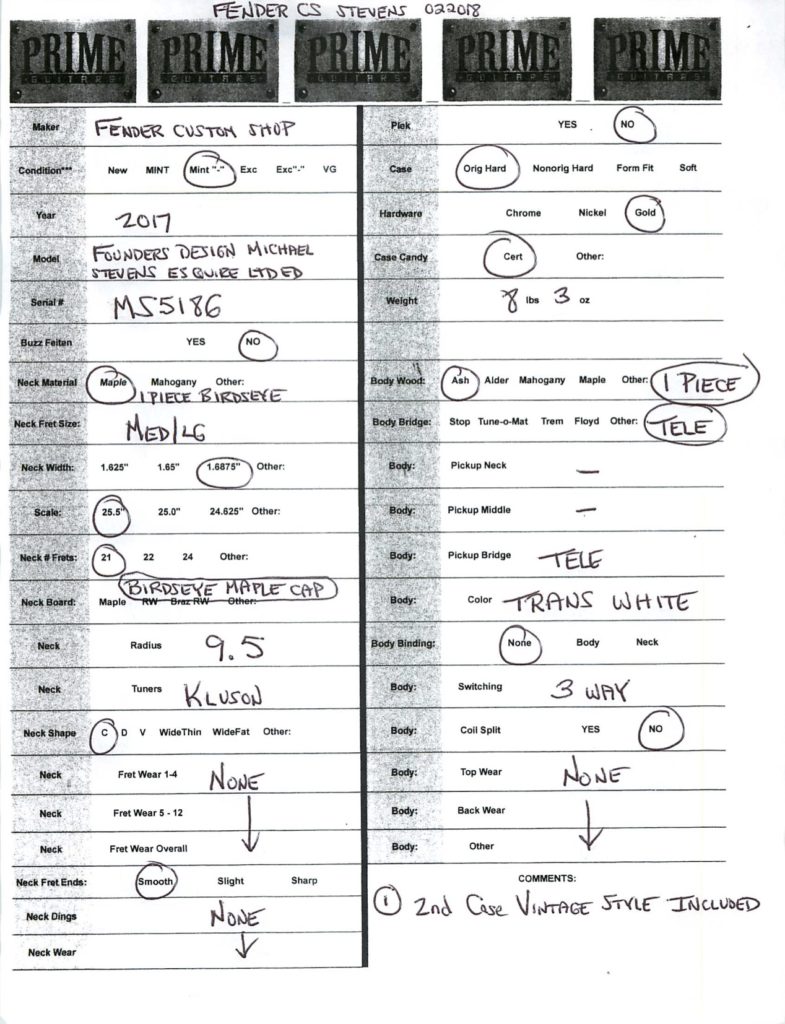 FENDER CS STEVENS 022018
PRIME GUITARS PRIME GUITARS PRIME GUITARS PRIME GUITARS PRIME GUITARS
Maker FENDER CUSTOM SHOP
Condition*** New MINT Mint "-" Exc Exc"-" VG
Year 2017
Model FOUNDERS DESIGN MICHAEL
STEVENS ESQUIRE LTD ED
Serial # MS5186
Buzz Feiten YES NO
Neck Material Maple Mahogany Other:
1 PIECE BIRDSEYE
Neck Fret Size: MED/LG
Neck Width: 1.625" 1.65" 1.6875" Other:
Scale: 25.5" 25.0" 24.625" Other:
Neck # Frets: 21 22 24 Other:
BIRDSEYE MAPLE CAP
Neck Board: Maple RW Braz RW Other:
Neck Radius 9.5
Neck Tuners KLUSON
Neck Shape C D V WideThin WideFat Other:
Neck Fret Wear 1-4 NONE
Neck Fret Wear 5 - 12
Neck Fret Wear Overall
Neck Fret Ends: Smooth Slight Sharp
Neck Dings NONE
Neck Wear
Plek YES NO
Case Orig Hard Nonorig Hard Form Fit Soft
Hardware Chrome Nickel Gold
Case Candy Cert Other:
Weight 8 lbs 3 oz
Body Wood: Ash Alder Mahogany Maple Other: 1 PIECE
Body Bridge: Stop Tune-o-Mat Trem Floyd Other: TELE
Body: Pickup Neck —
Body: Pickup Middle —
Body: Pickup Bridge TELE
Body: Color TRANS WHITE
Body Binding: None Body Neck
Body: Switching 3 WAY
Body: Coil Split YES NO
Body: Top Wear NONE
Body: Back Wear
Body: Other
COMMENTS:
1 2nd Case VINTAGE STYLE INCLUDED